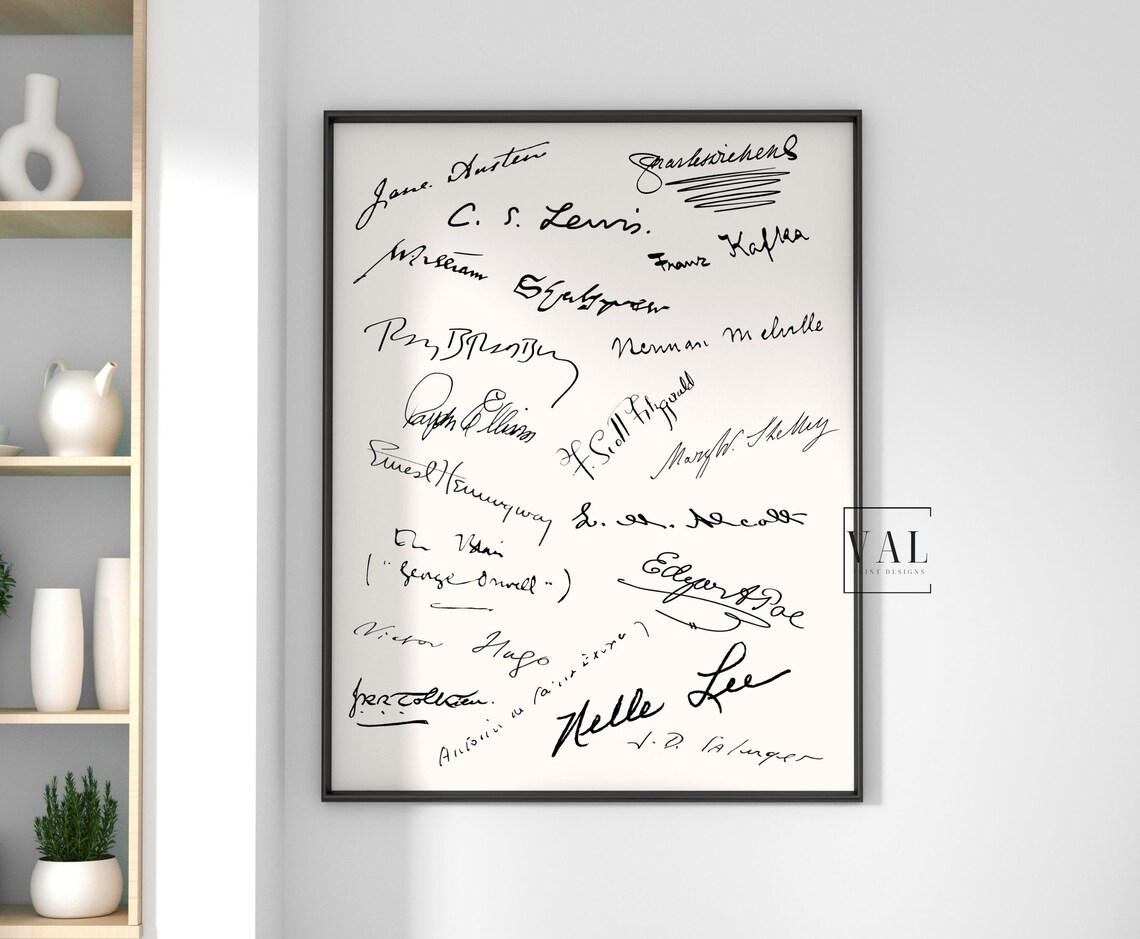 Jane Austen
Charles Dickens
C. S. Lewis.
Franz Kafka
William Shakspeare
Ray Bradbury
Herman Melville
Ralph Ellison
F. Scott Fitzgerald
Mary W. Shelley
Ernest Hemingway
L. M. Alcott
Eric Blair
("George Orwell")
Edgar A Poe
Victor Hugo
Antoine de Saint Exupéry
JRR Tolkien.
Nelle Lee
J. D. Salinger
VAL
PRINT DESIGNS